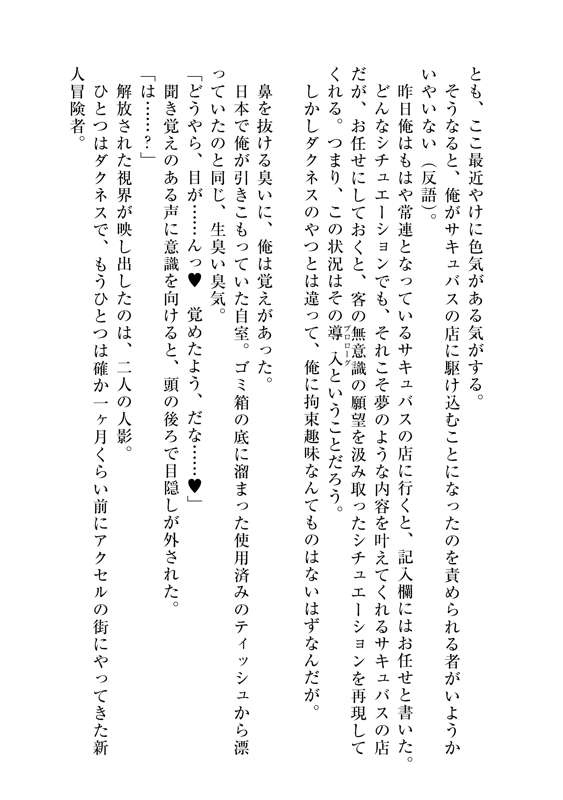 とも、ここ最近やけに色気がある気がする。
　そうなると、俺がサキュバスの店に駆け込むことになったのを責められる者がいようか
いやいない（反語）。
　昨日俺はもはや常連となっているサキュバスの店に行くと、記入欄にはお任せと書いた。
　どんなシチュエーションでも、それこそ夢のような内容を叶えてくれるサキュバスの店
だが、お任せにしておくと、客の無意識の願望を汲み取ったシチュエーションを再現して
くれる。つまり、この状況はその導入ということだろう。
プロローグ
　しかしダクネスのやつとは違って、俺に拘束趣味なんてものはないはずなんだが。
　鼻を抜ける臭いに、俺は覚えがあった。
　日本で俺が引きこもっていた自室。ゴミ箱の底に溜まった使用済みのティッシュから漂
っていたのと同じ、生臭い臭気。
「どうやら、目が……んっ♥　覚めたよう、だな……♥」
　聞き覚えのある声に意識を向けると、頭の後ろで目隠しが外された。
「は……？」
　解放された視界が映し出したのは、二人の人影。
　ひとつはダクネスで、もうひとつは確か一ヶ月くらい前にアクセルの街にやってきた新
人冒険者。